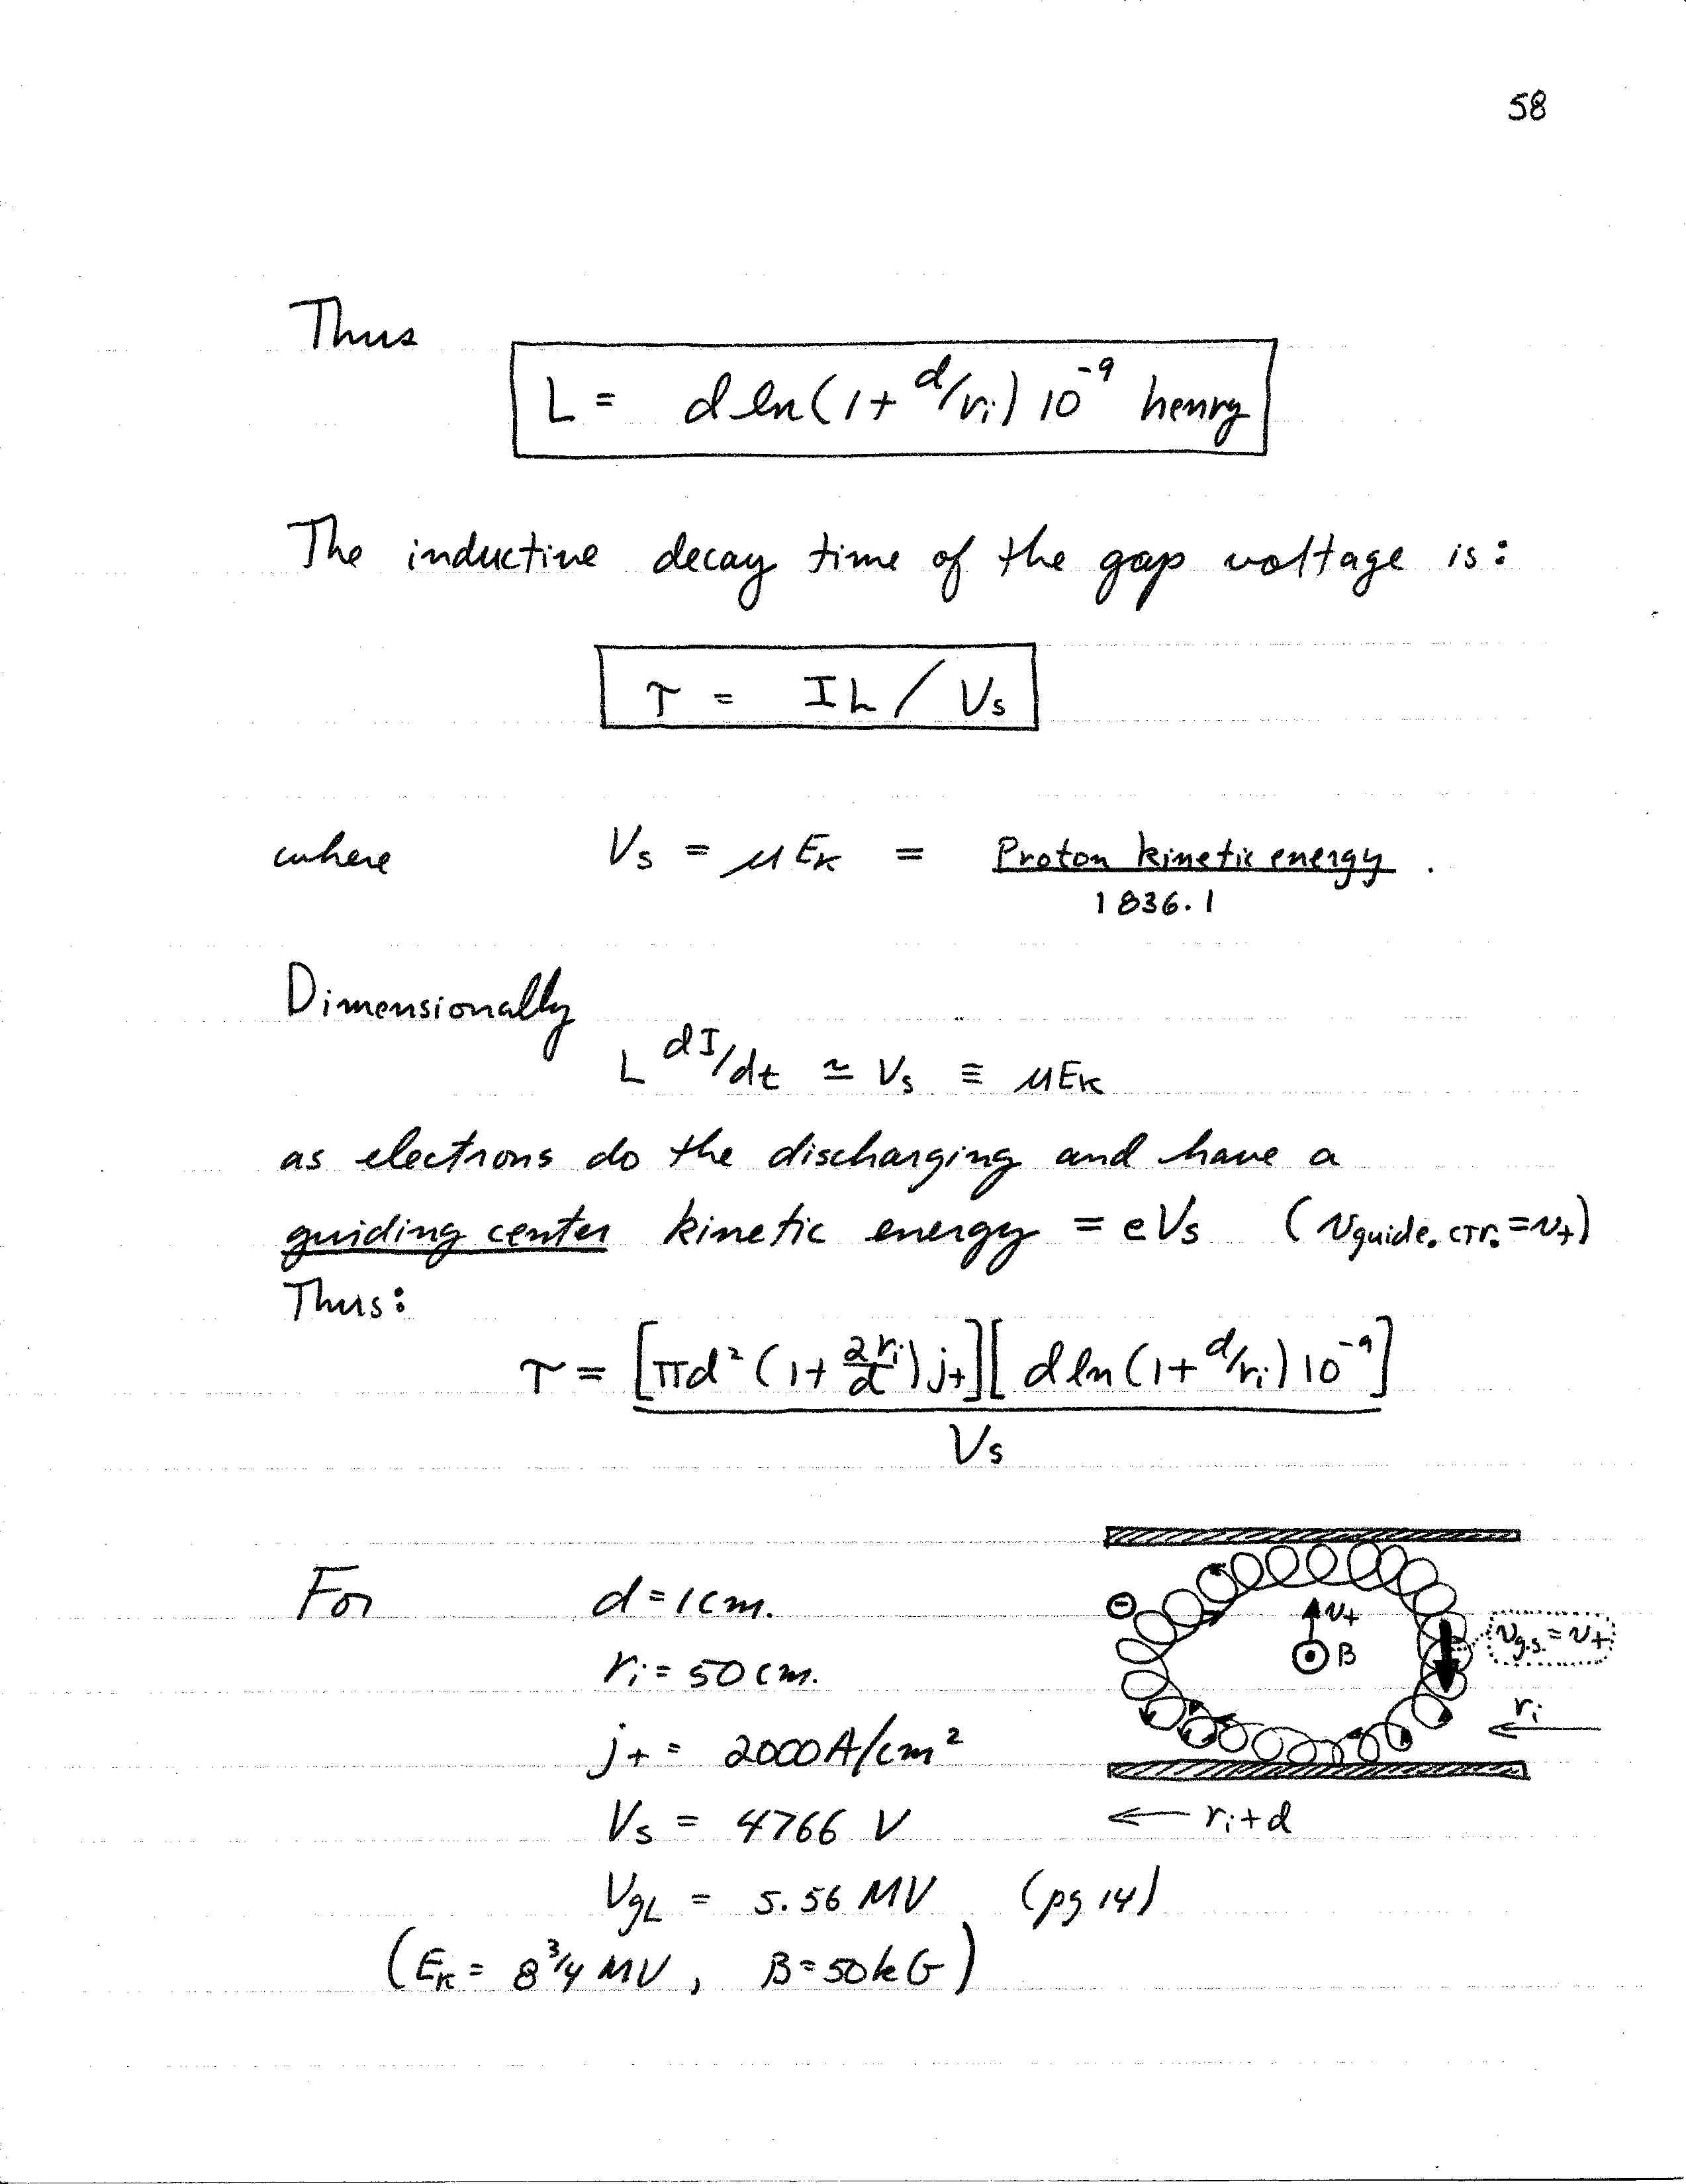 58
Thus
L = d ln(1 + d/ri) 10^-9 henry
The inductive decay time of the gap voltage is:
τ = IL / Vs
where Vs = μEK = Proton kinetic energy / 1836.1 .
Dimensionally
L dI/dt ≃ Vs ≡ μEK
as electrons do the discharging and have a
guiding center kinetic energy = eVs (vguide. ctr. = v+)
Thus:
τ = [πd² (1 + 2ri/d) j+][d ln(1 + d/ri) 10^-9] / Vs
For d = 1 cm.
ri = 50 cm.
j+ = 2000 A/cm²
Vs = 4766 V
VgL = 5.56 MV (pg 14)
(EK = 8 3/4 MV, B = 50 kG)
⊖
v+
B
vg.s. = v+
ri
← ri + d